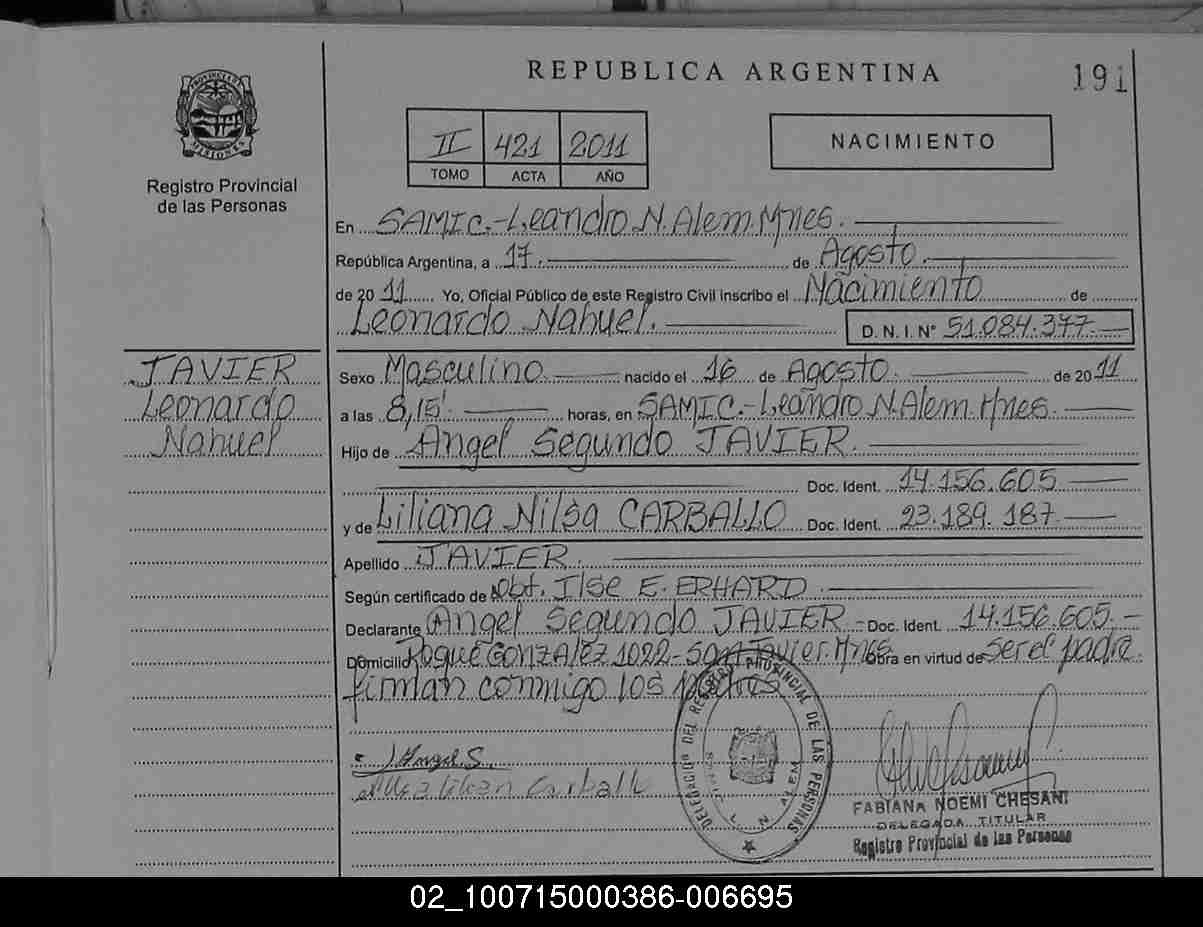 REPUBLICA ARGENTINA
191
PROVINCIA DE MISIONES
Registro Provincial
de las Personas
II 421 2011
TOMO ACTA AÑO
NACIMIENTO
En SAMIC.-Leandro N. Alem. Mnes.
República Argentina, a 17. de Agosto.
de 2011 Yo, Oficial Público de este Registro Civil inscribo el Nacimiento de
Leonardo Nahuel. D. N. I. N° 51.084.377.
JAVIER
Leonardo
Nahuel
Sexo Masculino. nacido el 16 de Agosto. de 2011
a las 8,15' horas, en SAMIC.-Leandro N. Alem. Mnes.
Hijo de Angel Segundo JAVIER.
Doc. Ident. 14.156.605
y de Liliana Nilsa CARBALLO Doc. Ident. 23.189.187.
Apellido JAVIER.
Según certificado de Obt. Ilse E. ERHARD.
Declarante Angel Segundo JAVIER - Doc. Ident. 14.156.605.-
Domicilio Roque GONZALEZ 1022-San Javier. Mnes Obra en virtud de ser el padre.
firman conmigo los padres
J. Angel S.
Carballo
DELEGACION DEL REGISTRO PROVINCIAL DE LAS PERSONAS
SAMIC L. N. ALEM
FABIANA NOEMI CHESANI
DELEGADA TITULAR
Registro Provincial de las Personas
02_100715000386-006695